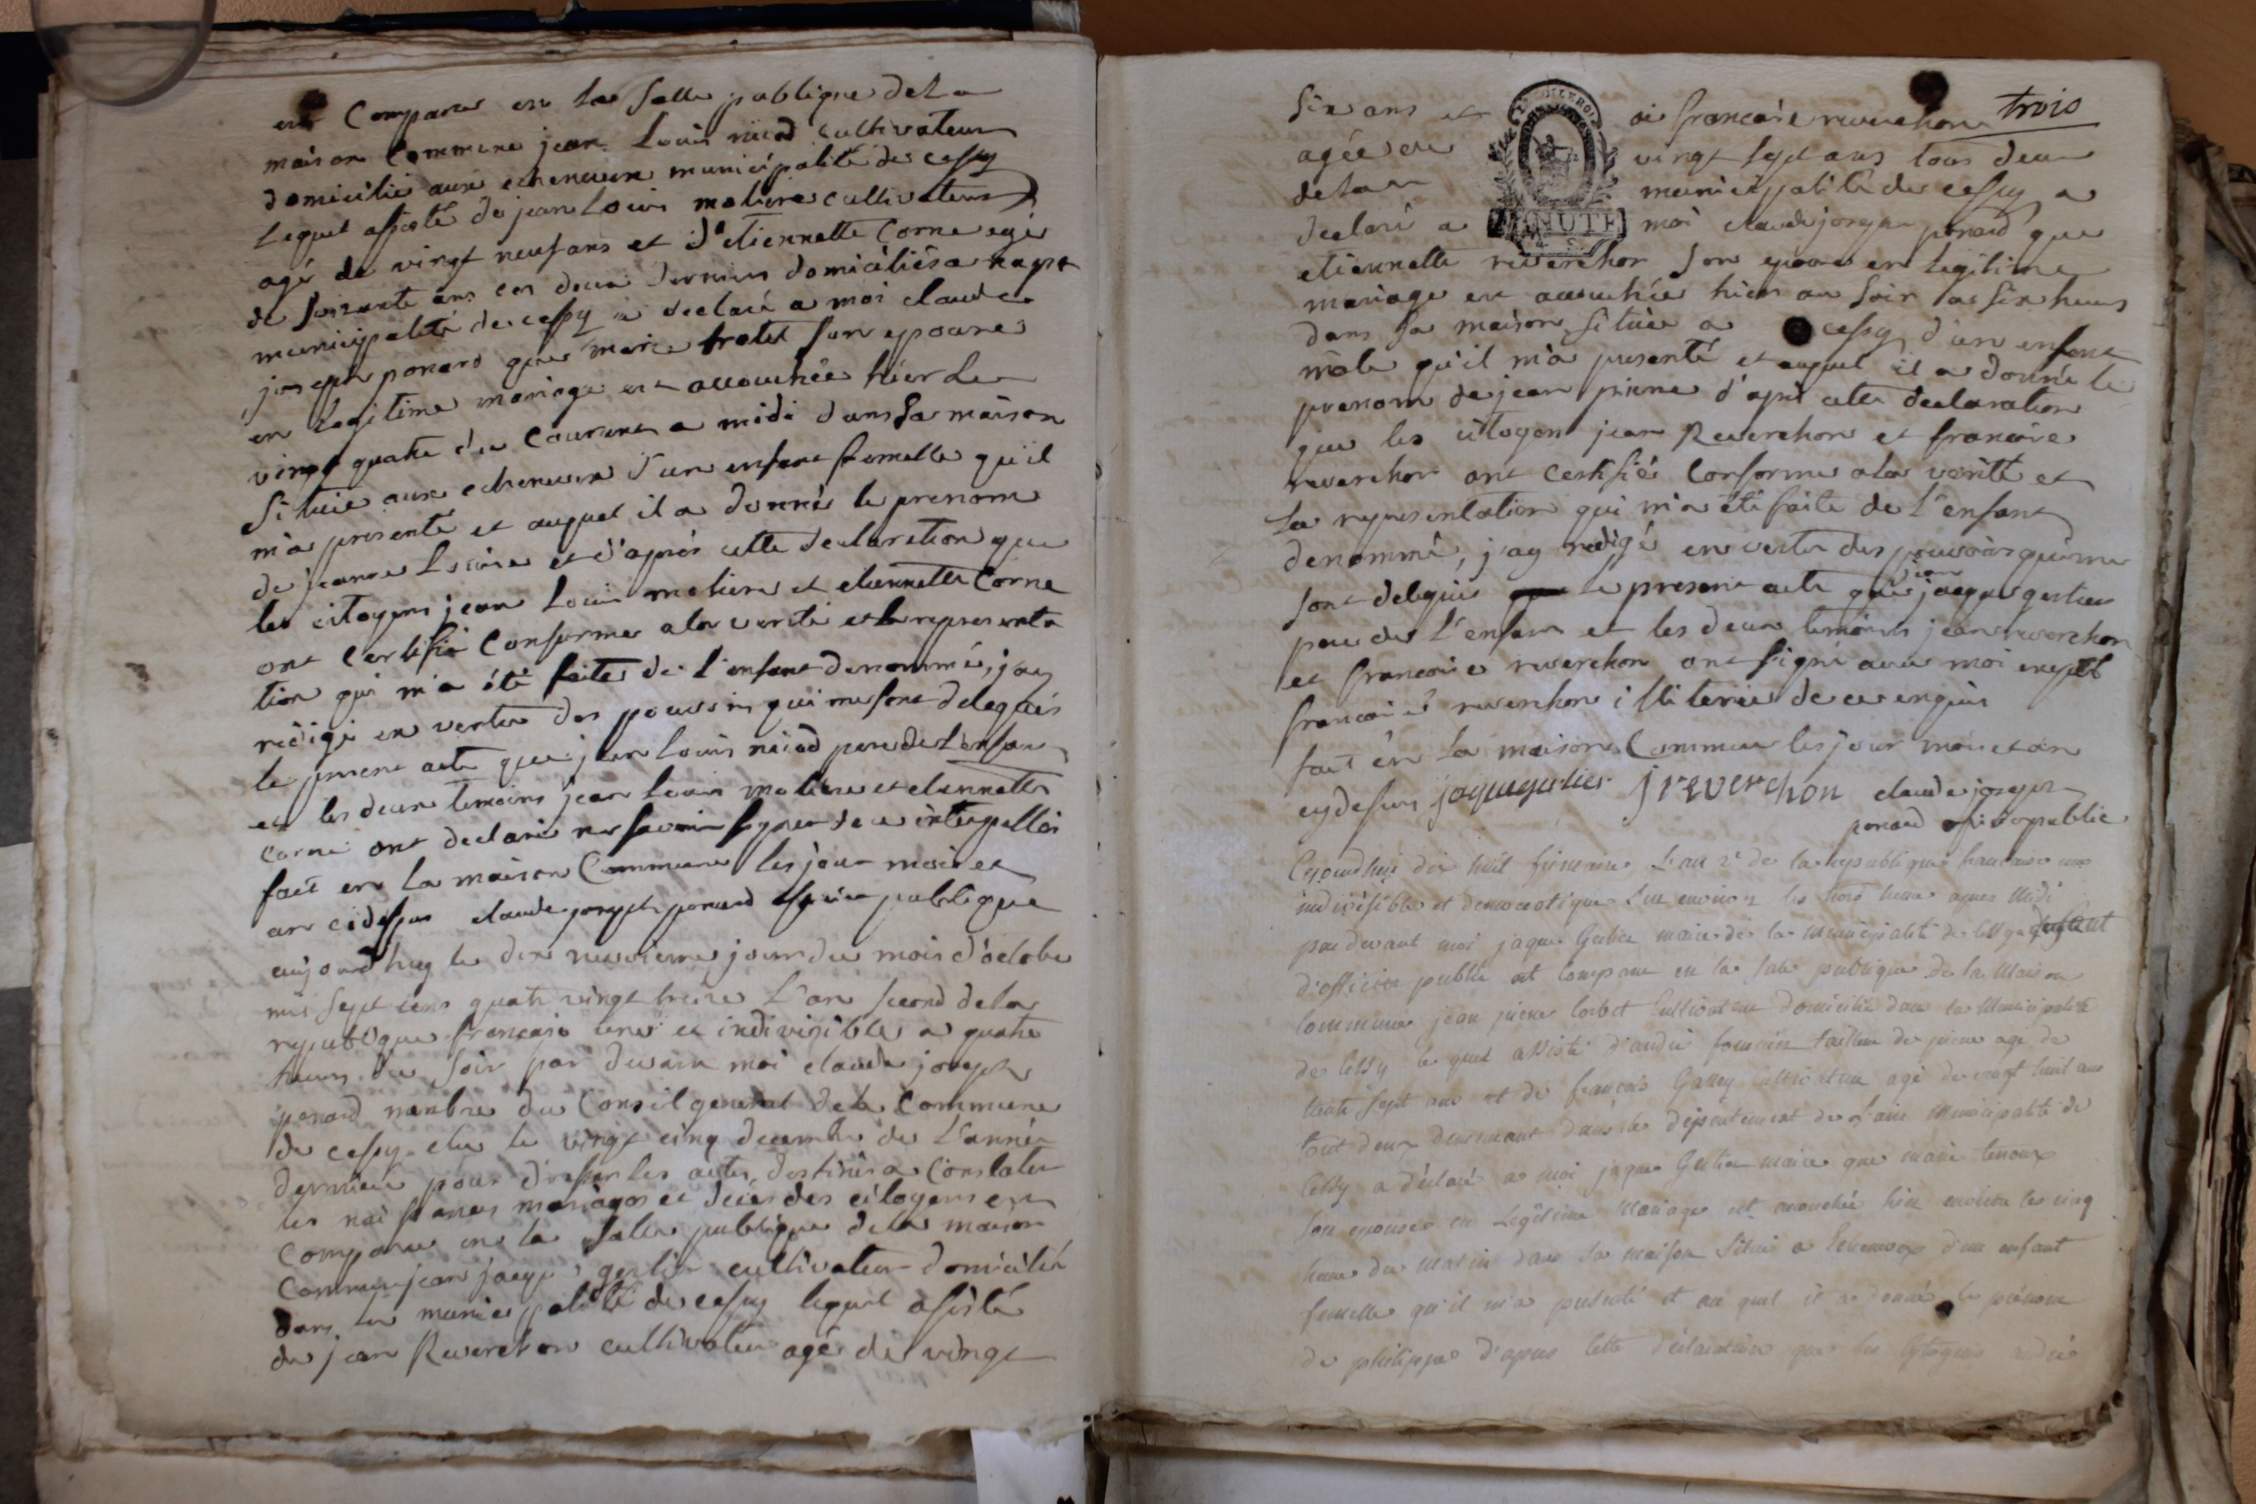 est Comparu en la Salle publique de la
maison Commune jean Louis niod cultivateur
domicilié aux echenevex municipalité de cessy
Lequel assisté de jean Louis moliere cultivateur
agé de vingt neuf ans et d'etiennette Corne agé
de soixante ans ces deux derniers domiciliés a
municipalité de cessy a declaré a moi claude
joseph ponard que marie son epouse
en Legitime mariage est accouchée hier Le
vingt quatre du Courant a midi dans sa maison
Située aux echenevex d'un enfant femelle qu'il
m'a presenté et auquel il a donné le prenom
de jeanne Louise et d'après cette declaration que
les citoyens jean Louis moliere et etiennette Corne
ont Certifié Conforme a la verité et la representa
tion qui m'a été faite de l'enfant denommé, j'ay
redigé en vertu des pouvoirs qui me sont delegués
le present acte que jean Louis niod pere de L'enfant
et les deux temoins jean Louis moliere et etiennette
Corne ont declaré ne savoir signer de ce interpellés
fait en la maison Commune les jour mois et
an cidessus claude joseph ponard officier publique
aujourd'huy le dix neuvieme jour du mois d'octobre
mil sept cens quatre vingt treize L'an second de la
republique francaise une et indivisible a quatre
heures du soir par devant moi claude joseph
ponard membre du Conseil general de la Commune
de cessy elu le vingt cinq decembre de L'année
derniere pour dresser les actes destinés a Constater
les naissances mariages et deces des citoyens est
Comparu en la salle publique de la maison
Commune jean jaque gerlier cultivateur domicilié
dans la municipalité de cessy lequel assisté
de jean Reverchon cultivateur agé de vingt
trois
Six ans et francoise reverchon
agée de vingt sept ans tous deux
de la municipalité de cessy a
declaré a moi claude joseph ponard que
MINUTE
etiennette reverchon son epouse en legitime
mariage est accouchée hier au soir a six heures
dans sa maison située a cessy d'un enfant
mâle qu'il m'a presenté et auquel il a donné le
prenom de jean pierre d'après cette declaration
que les citoyens jean Reverchon et francoise
reverchon ont certifié Conforme a la verité et
La representation qui m'a été faite de L'enfant
denommé, j'ay redigé en vertu des pouvoirs qui me
sont delegués le present acte que jean jaque gerlier
pere de L'enfant et les deux temoins jean reverchon
et francoise reverchon ont signé avec moi except
francoise reverchon illiterée de ce enquis
fait en la maison Commune les jour mois et an
cy dessus jaque gerlier j reverchon claude joseph
ponard officier public
Cejourd'hui dix huit frimaire L'an 2e de la republique francaise une
indivisible et democratique Sur environ les trois heure apres Midi
par devant moi jaque Gerlier maire de la Municipalité de Cessy
d'officier public est Comparu en la sale publique de la Maison
Commune jean pierre Cultivateur domicilié dans la Municipalité
de Cessy le quel assisté d'andré tailleur de pierre agé de
trente sept ans et de francois Cultivateur agé de vingt huit ans
tout deux demeurant dans le departement de l'ain Municipalité de
Cessy a déclaré a moi jaque Gerlier maire que marie
son epouse en Legitime Mariage est accouchée hier environ les cinq
heure du Matin dans sa maison située a Echenevex d'un enfant
femelle qu'il m'a presenté et au quel il a donné le prénom
de philippe d'apres cette déclaration que les Citoyens andré